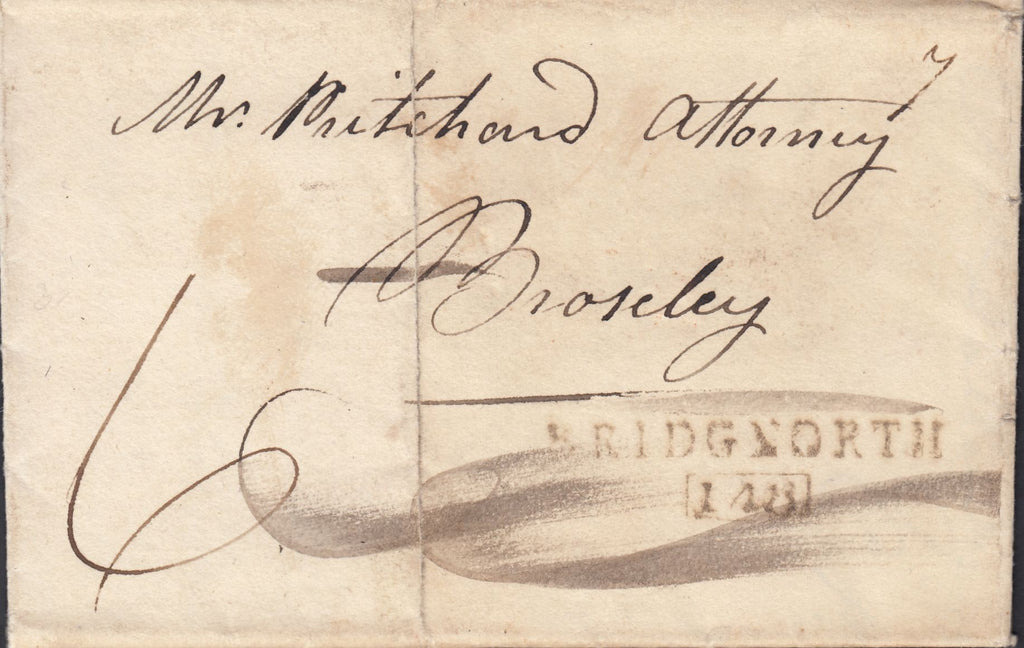 Mr. Pritchard Attorney
Broseley
6
BRIDGNORTH
148